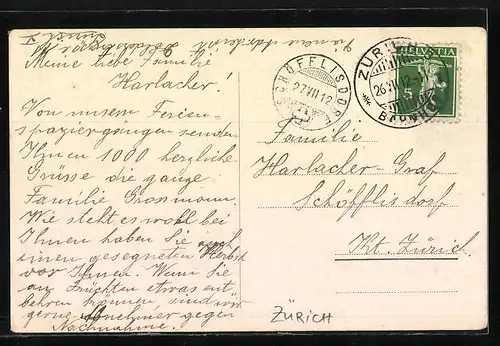 Meine liebe Familie
Harlacher!
Von unsern Ferien-
spaziergängen senden
Ihnen 1000 herzliche
Grüsse die ganze
Familie Grossmann.
Wie steht es wohl bei
Ihnen haben Sie auch
einen gesegneten Herbst
vor Ihnen. Wenn Sie
an Früchten etwas ent
behren können, sind wir
gerne Abnehmer gegen
Nachnahme!
SCHÖFFLISDORF
27 VII 12
HELVETIA
5
Familie
Harlacher-Graf
Schöfflisdorf
Kt. Zürich
ZÜRICH